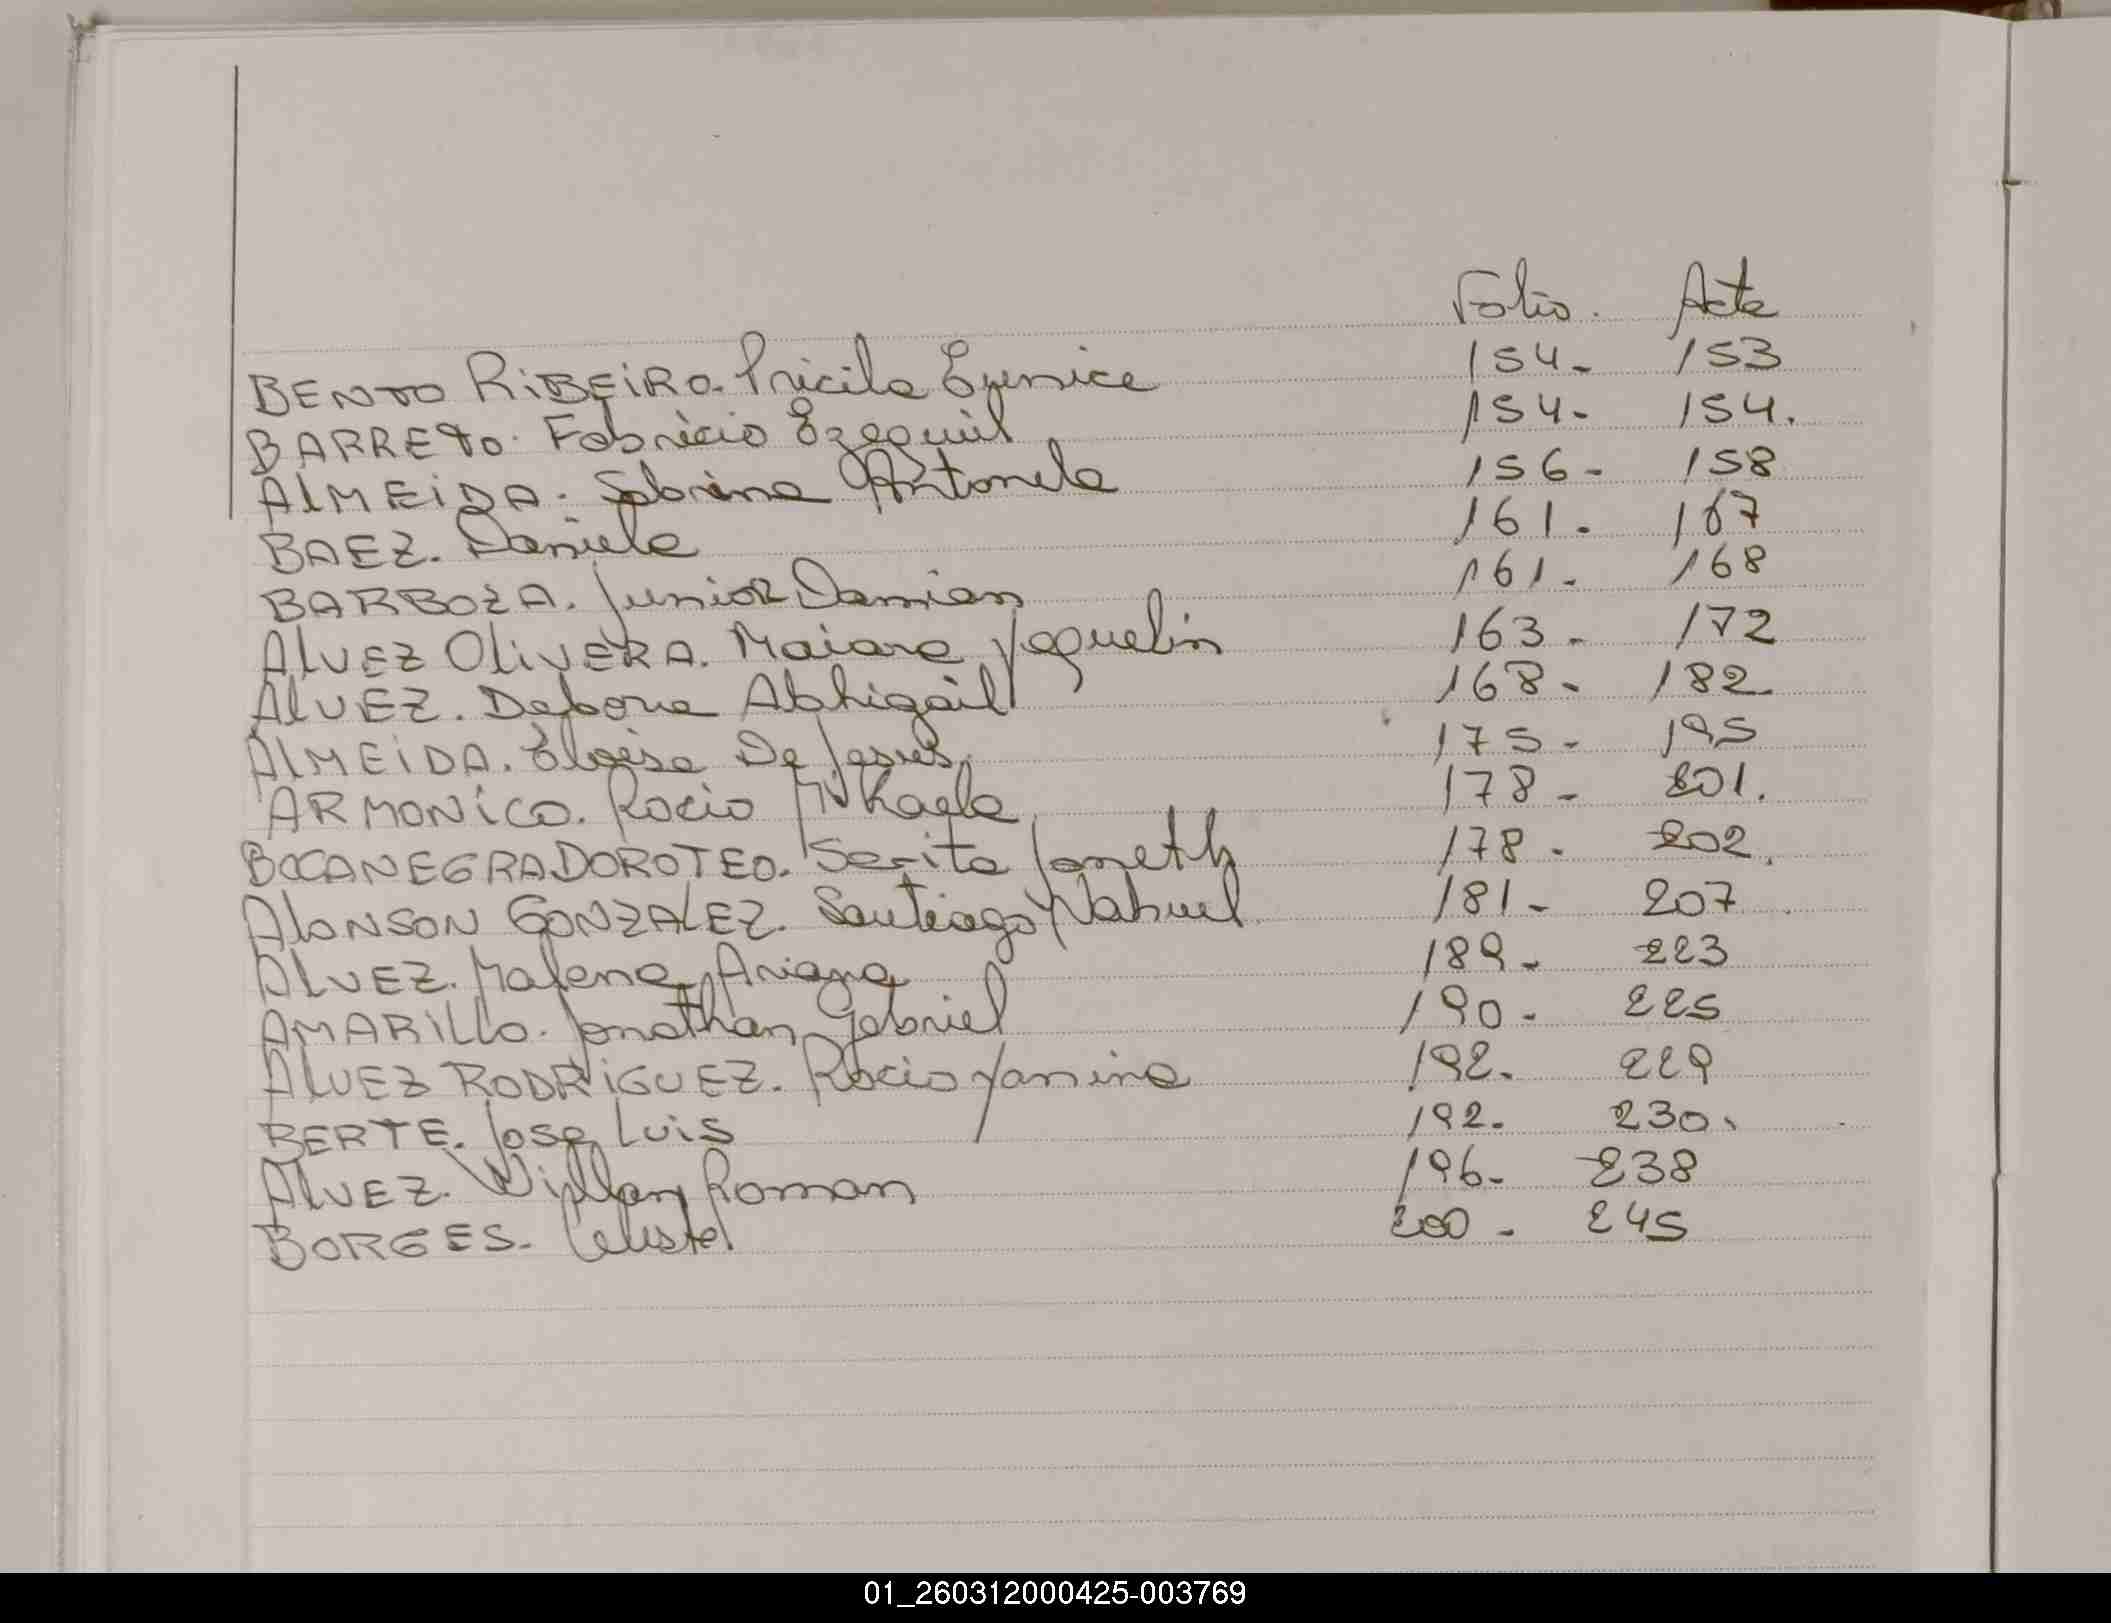 Folio. Acta
BENTO RIBEIRO. Pricila Eunice 154- 153
BARRETO. Fabricio Ezequiel 154- 154.
ALMEIDA. Sabrina Antonela 156- 158
BAEZ. Daniela 161- 167
BARBOZA. Junior Damian 161- 168
ALVEZ OLIVERA. Maiara Yaquelin 163- 172
ALVEZ. Debora Abhigail 168- 182
ALMEIDA. Eloisa De Jesus. 175- 195
ARMONICO. Rocio Mikaela 178- 201.
BOCANEGRA DOROTEO. Sarita Janeth 178- 202.
ALONSON GONZALEZ. Santiago Nahuel 181- 207
ALVEZ. Malena Ariana 189- 223
AMARILLO. Jonathan Gabriel 190- 225
ALVEZ RODRIGUEZ. Rocio Yanina 192. 229
BERTE. Jose Luis 192. 230.
ALVEZ. Roman 196- 238
BORGES. Celeste 200- 245
01_260312000425-003769